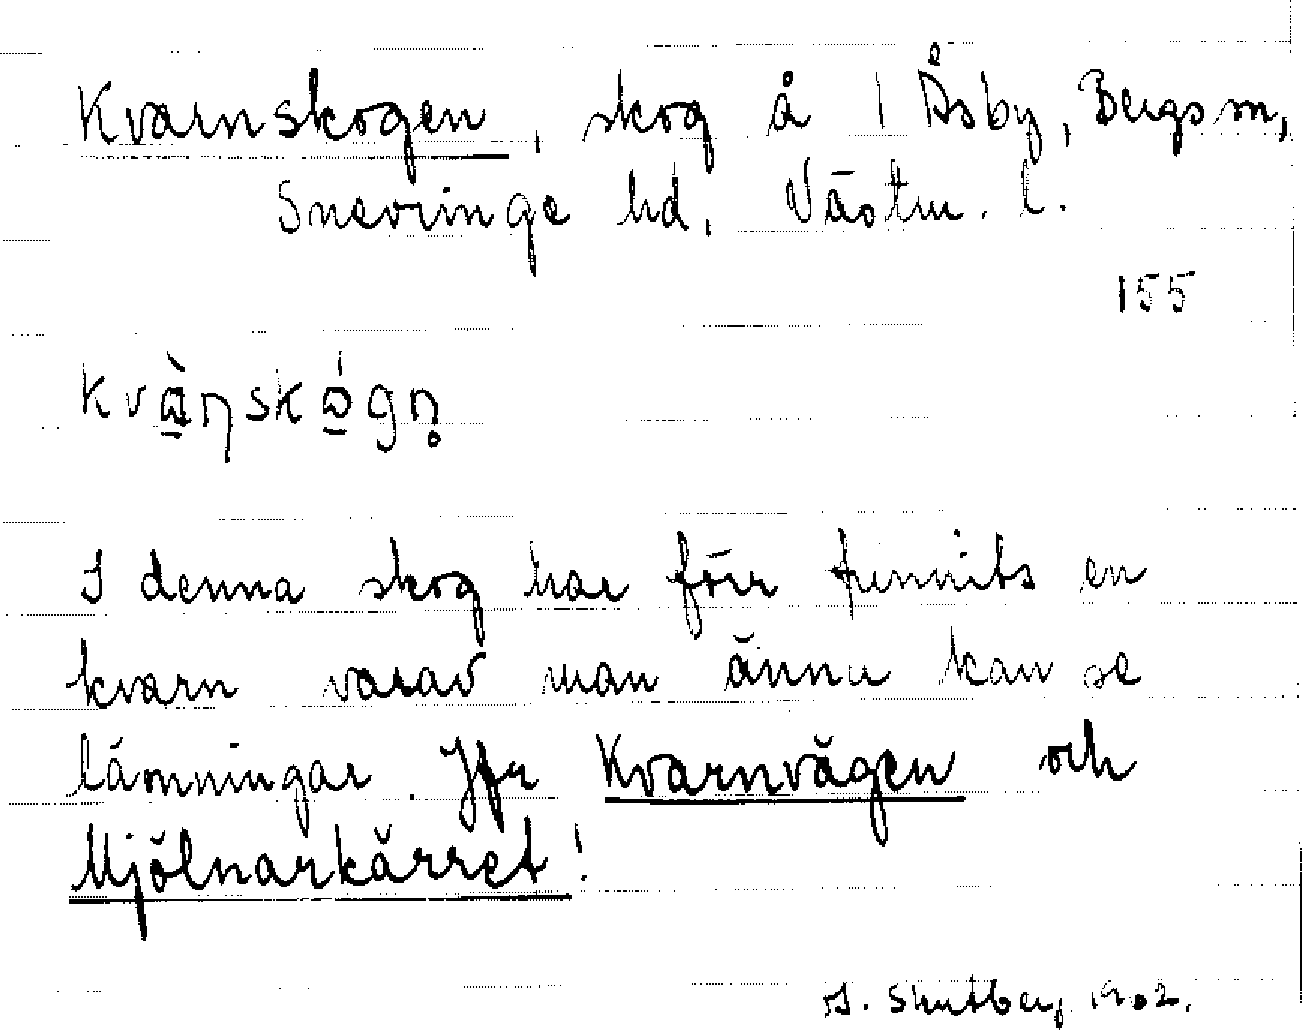 Kvarnskogen, skog å 1 Åsby, Bergs sn,
Snevringe hd. Västm. l.
155
I denna skog har förr funnits en
kvarn varav man ännu kan se
lämningar. Jfr Kvarnvägen och
Mjölnarkärret!
1902.